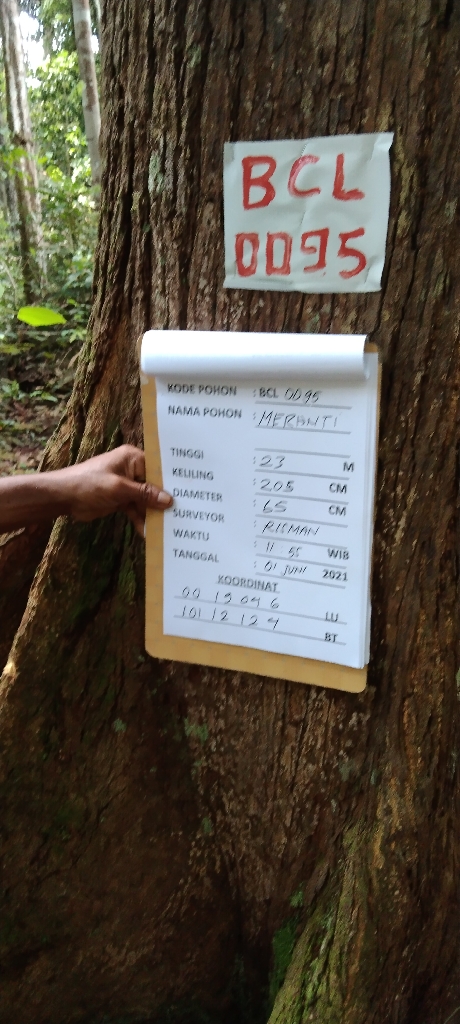 BCL
0095
KODE POHON : BCL 0095
NAMA POHON : MERANTI
TINGGI : 23 M
KELILING : 205 CM
DIAMETER : 65 CM
SURVEYOR : RISMAN
WAKTU : 11 55 WIB
TANGGAL : 01 JUNI 2021
KOORDINAT
00 19 04 6 LU
101 12 12 4 BT